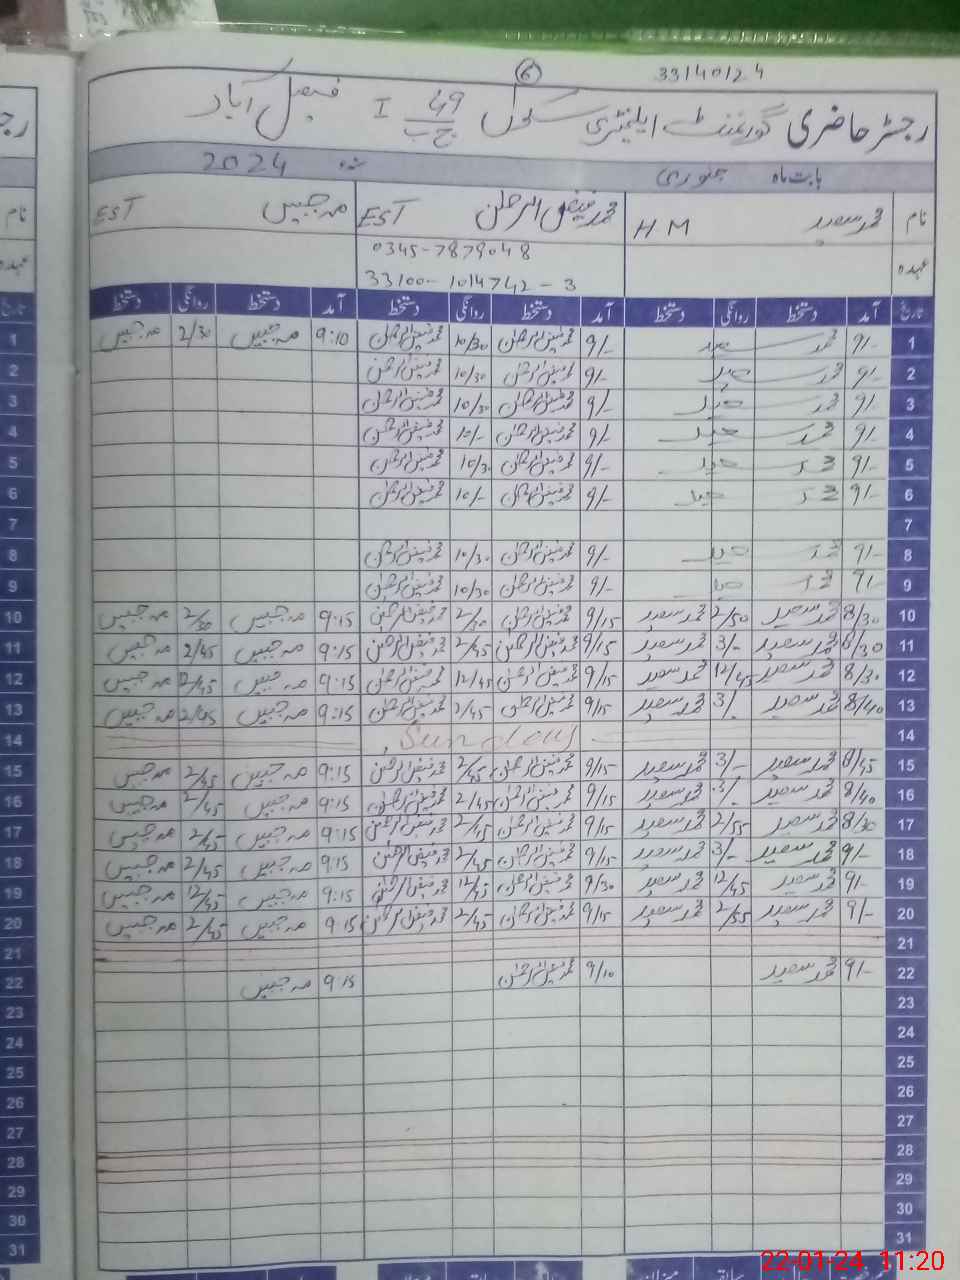 6 33140124
رجسٹر حاضری گورنمنٹ ایلیمنٹری سکول 49 ج ب I فیصل آباد
بابت ماہ جنوری سنہ 2024
نام محمد سعید H.M محمد فیض الرحمٰن EST مہ جبیں EST
عہدہ 0345-7879048
33100-1014742-3
تاریخ آمد دستخط روانگی دستخط آمد دستخط روانگی دستخط آمد دستخط روانگی دستخط
1 9/- محمد سعید 9/- محمد فیض الرحمٰن 10/30 محمد فیض الرحمٰن 9:10 مہ جبیں 2/30 مہ جبیں
2 9/- محمد سعید 9/- محمد فیض الرحمٰن 10/30 محمد فیض الرحمٰن
3 9/- محمد سعید 9/- محمد فیض الرحمٰن 10/30 محمد فیض الرحمٰن
4 9/- محمد سعید 9/- محمد فیض الرحمٰن 10/- محمد فیض الرحمٰن
5 9/- محمد سعید 9/- محمد فیض الرحمٰن 10/30 محمد فیض الرحمٰن
6 9/- محمد سعید 9/- محمد فیض الرحمٰن 10/- محمد فیض الرحمٰن
7
8 9/- محمد سعید 9/- محمد فیض الرحمٰن 10/30 محمد فیض الرحمٰن
9 9/- محمد سعید 9/- محمد فیض الرحمٰن 10/30 محمد فیض الرحمٰن
10 8/30 محمد سعید 2/50 محمد سعید 9/15 محمد فیض الرحمٰن 2/30 محمد فیض الرحمٰن 9:15 مہ جبیں 2/30 مہ جبیں
11 8/30 محمد سعید 3/- محمد سعید 9/15 محمد فیض الرحمٰن 2/45 محمد فیض الرحمٰن 9:15 مہ جبیں 2/45 مہ جبیں
12 8/30 محمد سعید 12/45 محمد سعید 9/15 محمد فیض الرحمٰن 12/45 محمد فیض الرحمٰن 9:15 مہ جبیں 12/45 مہ جبیں
13 8/40 محمد سعید 3/- محمد سعید 9/15 محمد فیض الرحمٰن 2/45 محمد فیض الرحمٰن 9:15 مہ جبیں 2/45 مہ جبیں
14 Sunday
15 8/45 محمد سعید 3/- محمد سعید 9/15 محمد فیض الرحمٰن 2/45 محمد فیض الرحمٰن 9:15 مہ جبیں 2/45 مہ جبیں
16 8/40 محمد سعید 3/- محمد سعید 9/15 محمد فیض الرحمٰن 2/45 محمد فیض الرحمٰن 9:15 مہ جبیں 2/45 مہ جبیں
17 8/30 محمد سعید 2/55 محمد سعید 9/15 محمد فیض الرحمٰن 2/45 محمد فیض الرحمٰن 9:15 مہ جبیں 2/45 مہ جبیں
18 9/- محمد سعید 3/- محمد سعید 9/15 محمد فیض الرحمٰن 2/45 محمد فیض الرحمٰن 9:15 مہ جبیں 2/45 مہ جبیں
19 9/- محمد سعید 12/45 محمد سعید 9/30 محمد فیض الرحمٰن 12/45 محمد فیض الرحمٰن 9:15 مہ جبیں 12/45 مہ جبیں
20 9/- محمد سعید 2/55 محمد سعید 9/15 محمد فیض الرحمٰن 2/45 محمد فیض الرحمٰن 9:15 مہ جبیں 2/45 مہ جبیں
21
22 9/- محمد سعید 9/10 محمد فیض الرحمٰن 9:15 مہ جبیں
23
24
25
26
27
28
29
30
31
22-01-24 11:20